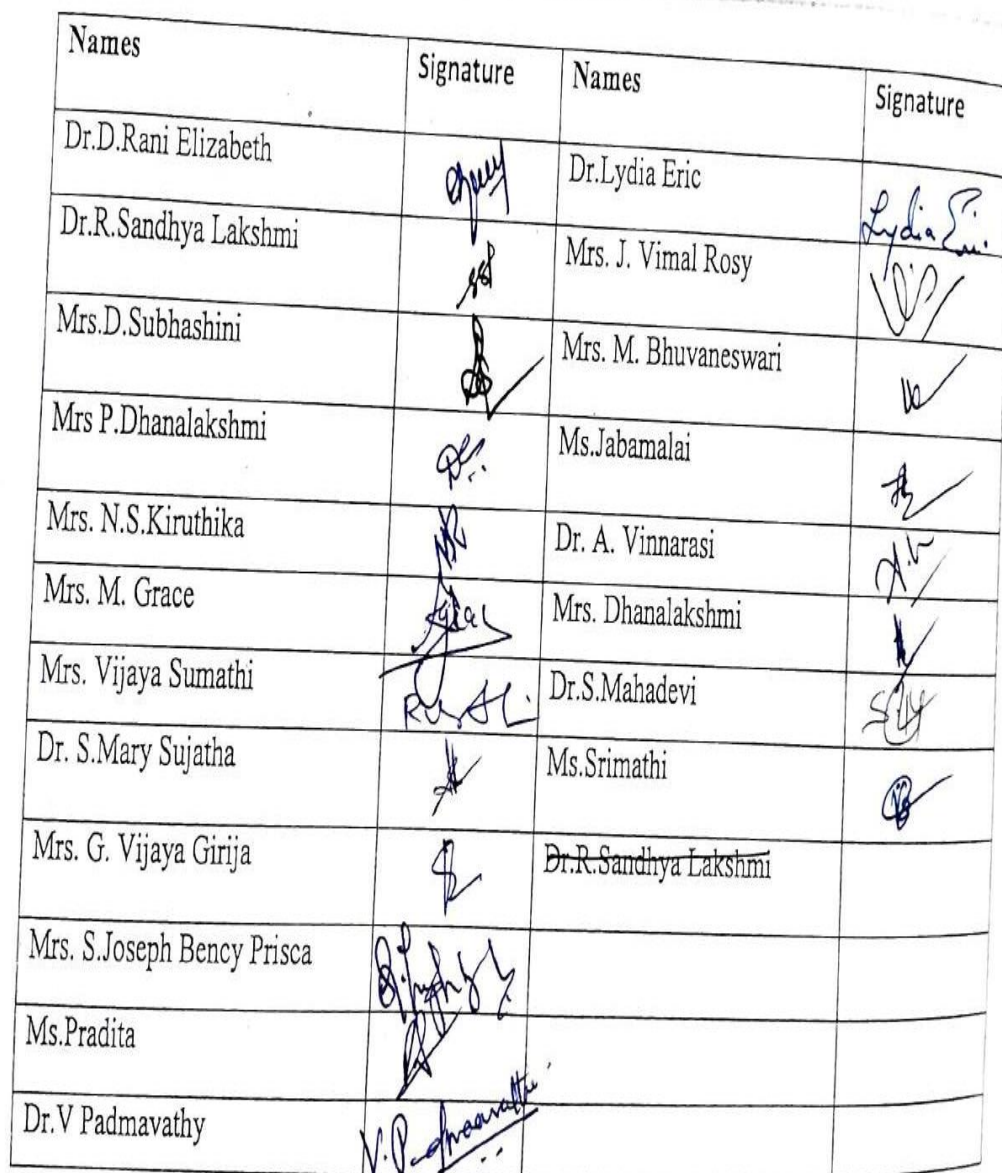 Names Signature Names Signature
Dr.D.Rani Elizabeth Dr.Lydia Eric Lydia Eric
Dr.R.Sandhya Lakshmi Mrs. J. Vimal Rosy
Mrs.D.Subhashini Mrs. M. Bhuvaneswari
Mrs P.Dhanalakshmi Ms.Jabamalai
Mrs. N.S.Kiruthika Dr. A. Vinnarasi
Mrs. M. Grace Mrs. Dhanalakshmi
Mrs. Vijaya Sumathi Dr.S.Mahadevi
Dr. S.Mary Sujatha Ms.Srimathi
Mrs. G. Vijaya Girija Dr.R.Sandhya Lakshmi
Mrs. S.Joseph Bency Prisca
Ms.Pradita
Dr.V Padmavathy V.Padmaavathy